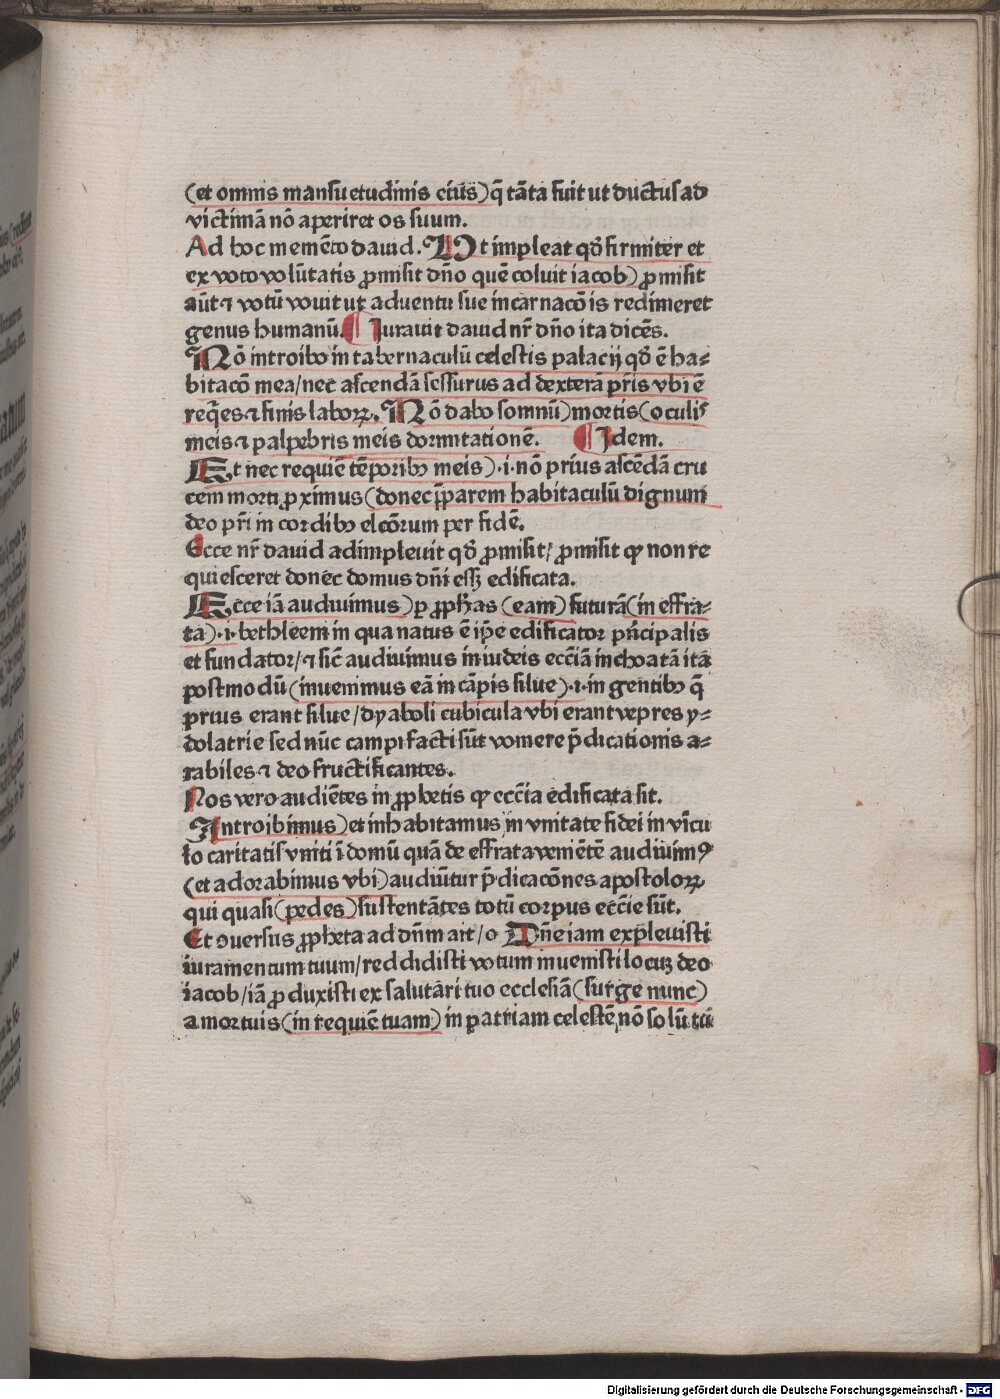 (et omnis mansuetudinis eiꝰs) q̄ tāta fuit ut ductus ad
victimā nō aperiret os suum.
Ad hoc memēto dauid. Ut impleat qd̄ firmiter et
ex voto volūtatis ꝓmisit dn̄o quē coluit iacob) ꝓmisit
aūt ⁊ votū vouit ut aduentu sue incarnacōis redimeret
genus humanū. ¶ Iurauit dauid nr̄ dn̄o ita dicēs.
Nō introibo in tabernaculū celestis palacij qd̄ ē ha-
bitacō mea/nec ascendā sessurus ad dexterā pr̄is vbi ē
reqͥes ⁊ finis laboꝝ. Nō dabo somnū) mortis (oculis
meis ⁊ palpebris meis dormitationē. ¶ Idem.
Et nec requiē tēporibꝰ meis) .i. nō prius ascēdā cru
cem morti ꝓximus (donec p̄parem habitaculū dignum
deo pr̄i in cordibꝰ elcōrum per fidē.
Ecce nr̄ dauid adimpleuit qd̄ ꝓmisit/ ꝓmisit ꝙ non re
quiesceret donec domus dn̄i essꝫ edificata.
Ecce iā audiuimus) ꝑ ꝓph̄as (eam) futurā (in effra-
ta) .i. bethleem in qua natus ē ip̄e edificator prīcipalis
et fundator/ ⁊ sic̄ audiuimus in iudeis ecc̄iā inchoatā ita
postmodū (inuenimus eā in cāpis silue) .i. in gentibꝰ q̄
prius erant silue /dyaboli cubicula vbi erant vepres y-
dolatrie sed nūc campi facti sūt vomere p̄dicationis a-
rabiles ⁊ deo fructificantes.
Nos vero audiētes in ꝓphetis ꝙ ecc̄ia edificata sit.
Introibimus) et inhabitamus in vnitate fidei in vīcu
lo caritatis vniti ī domū quā de effrata veniētē audiuimꝰ
(et adorabimus vbi) audiūtur p̄dicacōnes apostoloꝝ
qui quasi (pedes) sustentātes totū corpus ecc̄ie sūt.
Et ꝯuersus ꝓpheta ad dn̄m ait/o Dn̄e iam expleuisti
iuramentum tuum/reddidisti votum inuenisti locuꝫ deo
iacob/iā ꝓduxisti ex salutari tuo ecclesiā (surge nunc)
a mortuis (in requiē tuam) in patriam celestē, nō solū tu
Digitalisierung gefördert durch die Deutsche Forschungsgemeinschaft - DFG